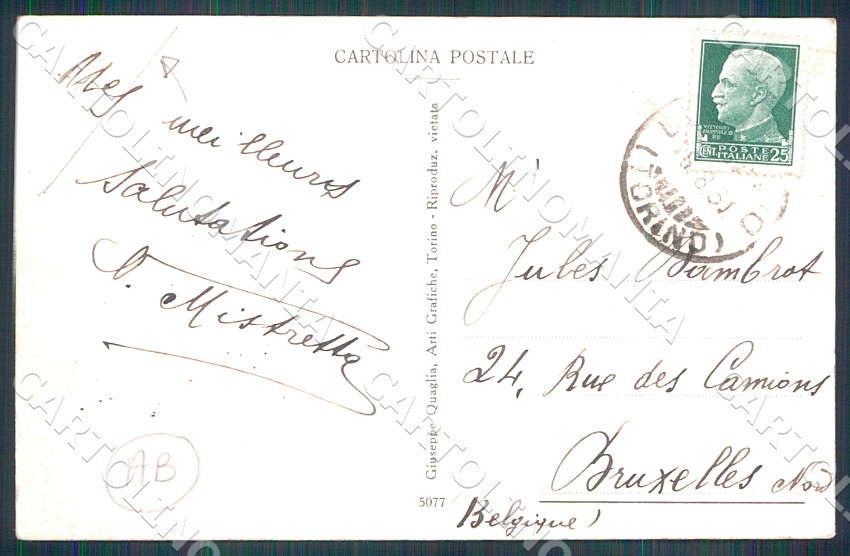 CARTOLINA POSTALE
Mes meilleures
Salutations
Mistretta
AB
Giuseppe Quaglia, Arti Grafiche, Torino - Riproduz. vietata
5077
POSTE
ITALIANE
CENT. 25
(TORINO)
Mr
Jules Dambrot
24, Rue des Camions
Bruxelles Nord
Belgique)
CARTOLINOMANIA